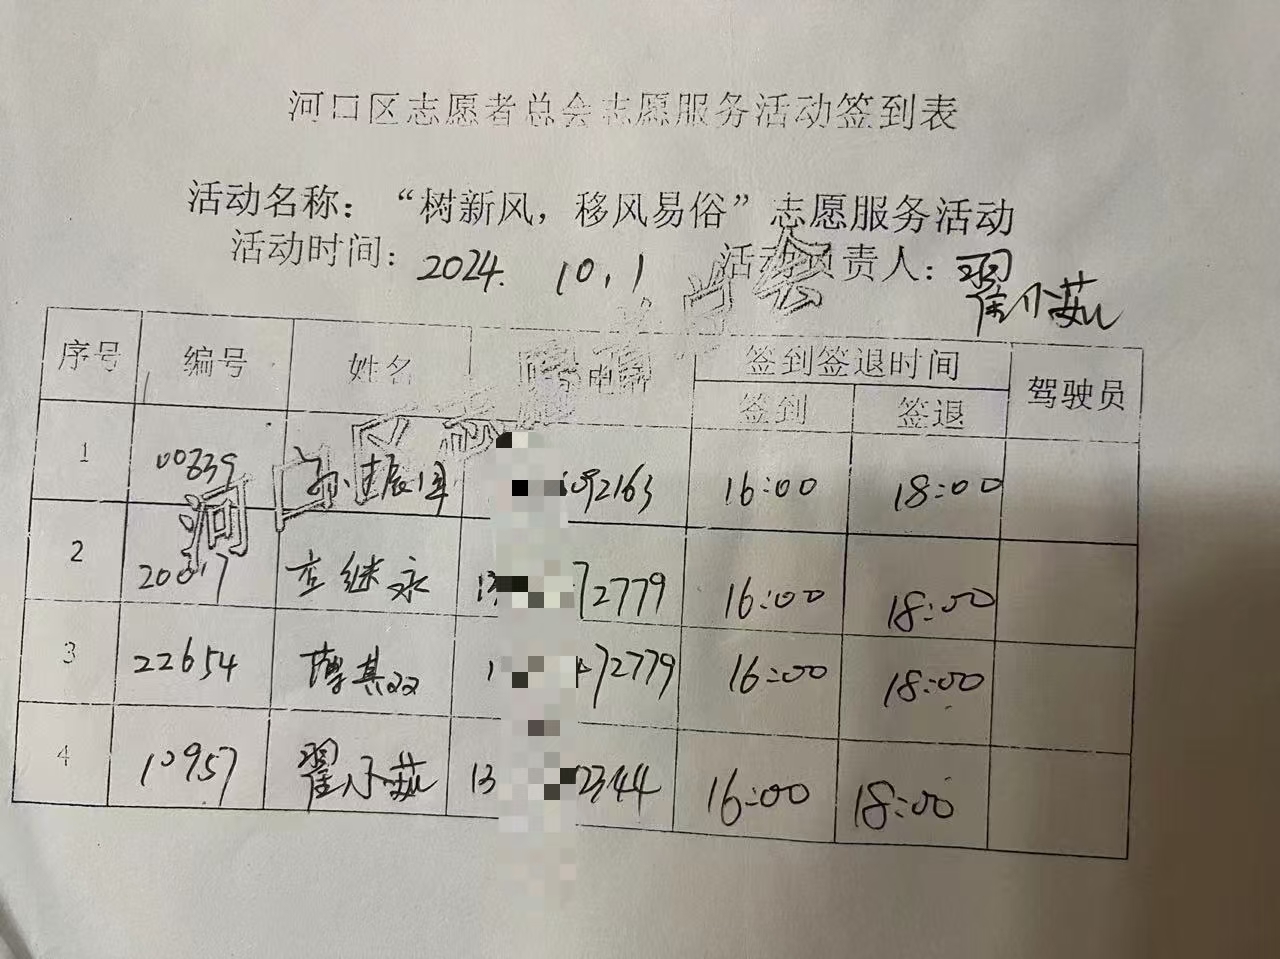 河口区志愿者总会志愿服务活动签到表
活动名称：“树新风，移风易俗”志愿服务活动
活动时间：2024. 10.1 活动负责人：翟小茹
序号 编号 姓名 电话 签到签退时间 驾驶员
签到 签退
1 00839 6092163 16:00 18:00
2 继永 13 72779 16:00 18:00
3 22654 薄其双 1 72779 16:00 18:00
4 10957 翟小茹 13 2344 16:00 18:00
河口区志愿者总会